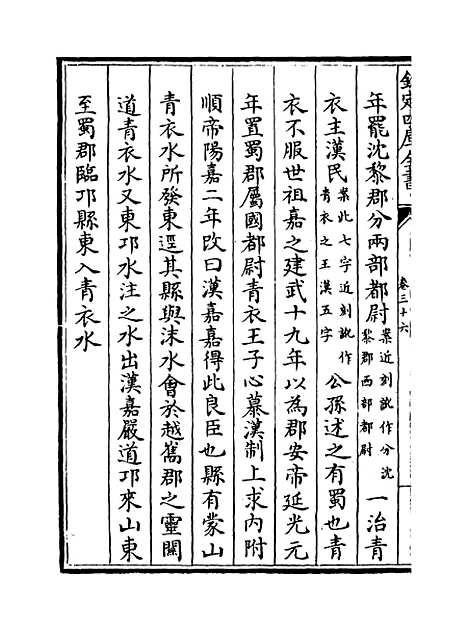 欽定四庫全書
卷三十六
年罷沈黎郡分兩部都尉案近刻訛作分沈黎郡西部都尉一治青
衣主漢民案此七字近刻訛作青衣之王漢五字公孫述之有蜀也青
衣不服世祖嘉之建武十九年以為郡安帝延光元
年置蜀郡屬國都尉青衣王子心慕漢制上求內附
順帝陽嘉二年改曰漢嘉嘉得此良臣也縣有蒙山
青衣水所發東逕其縣與沬水會於越嶲郡之靈關
道青衣水又東邛水注之水出漢嘉嚴道邛來山東
至蜀郡臨邛縣東入青衣水